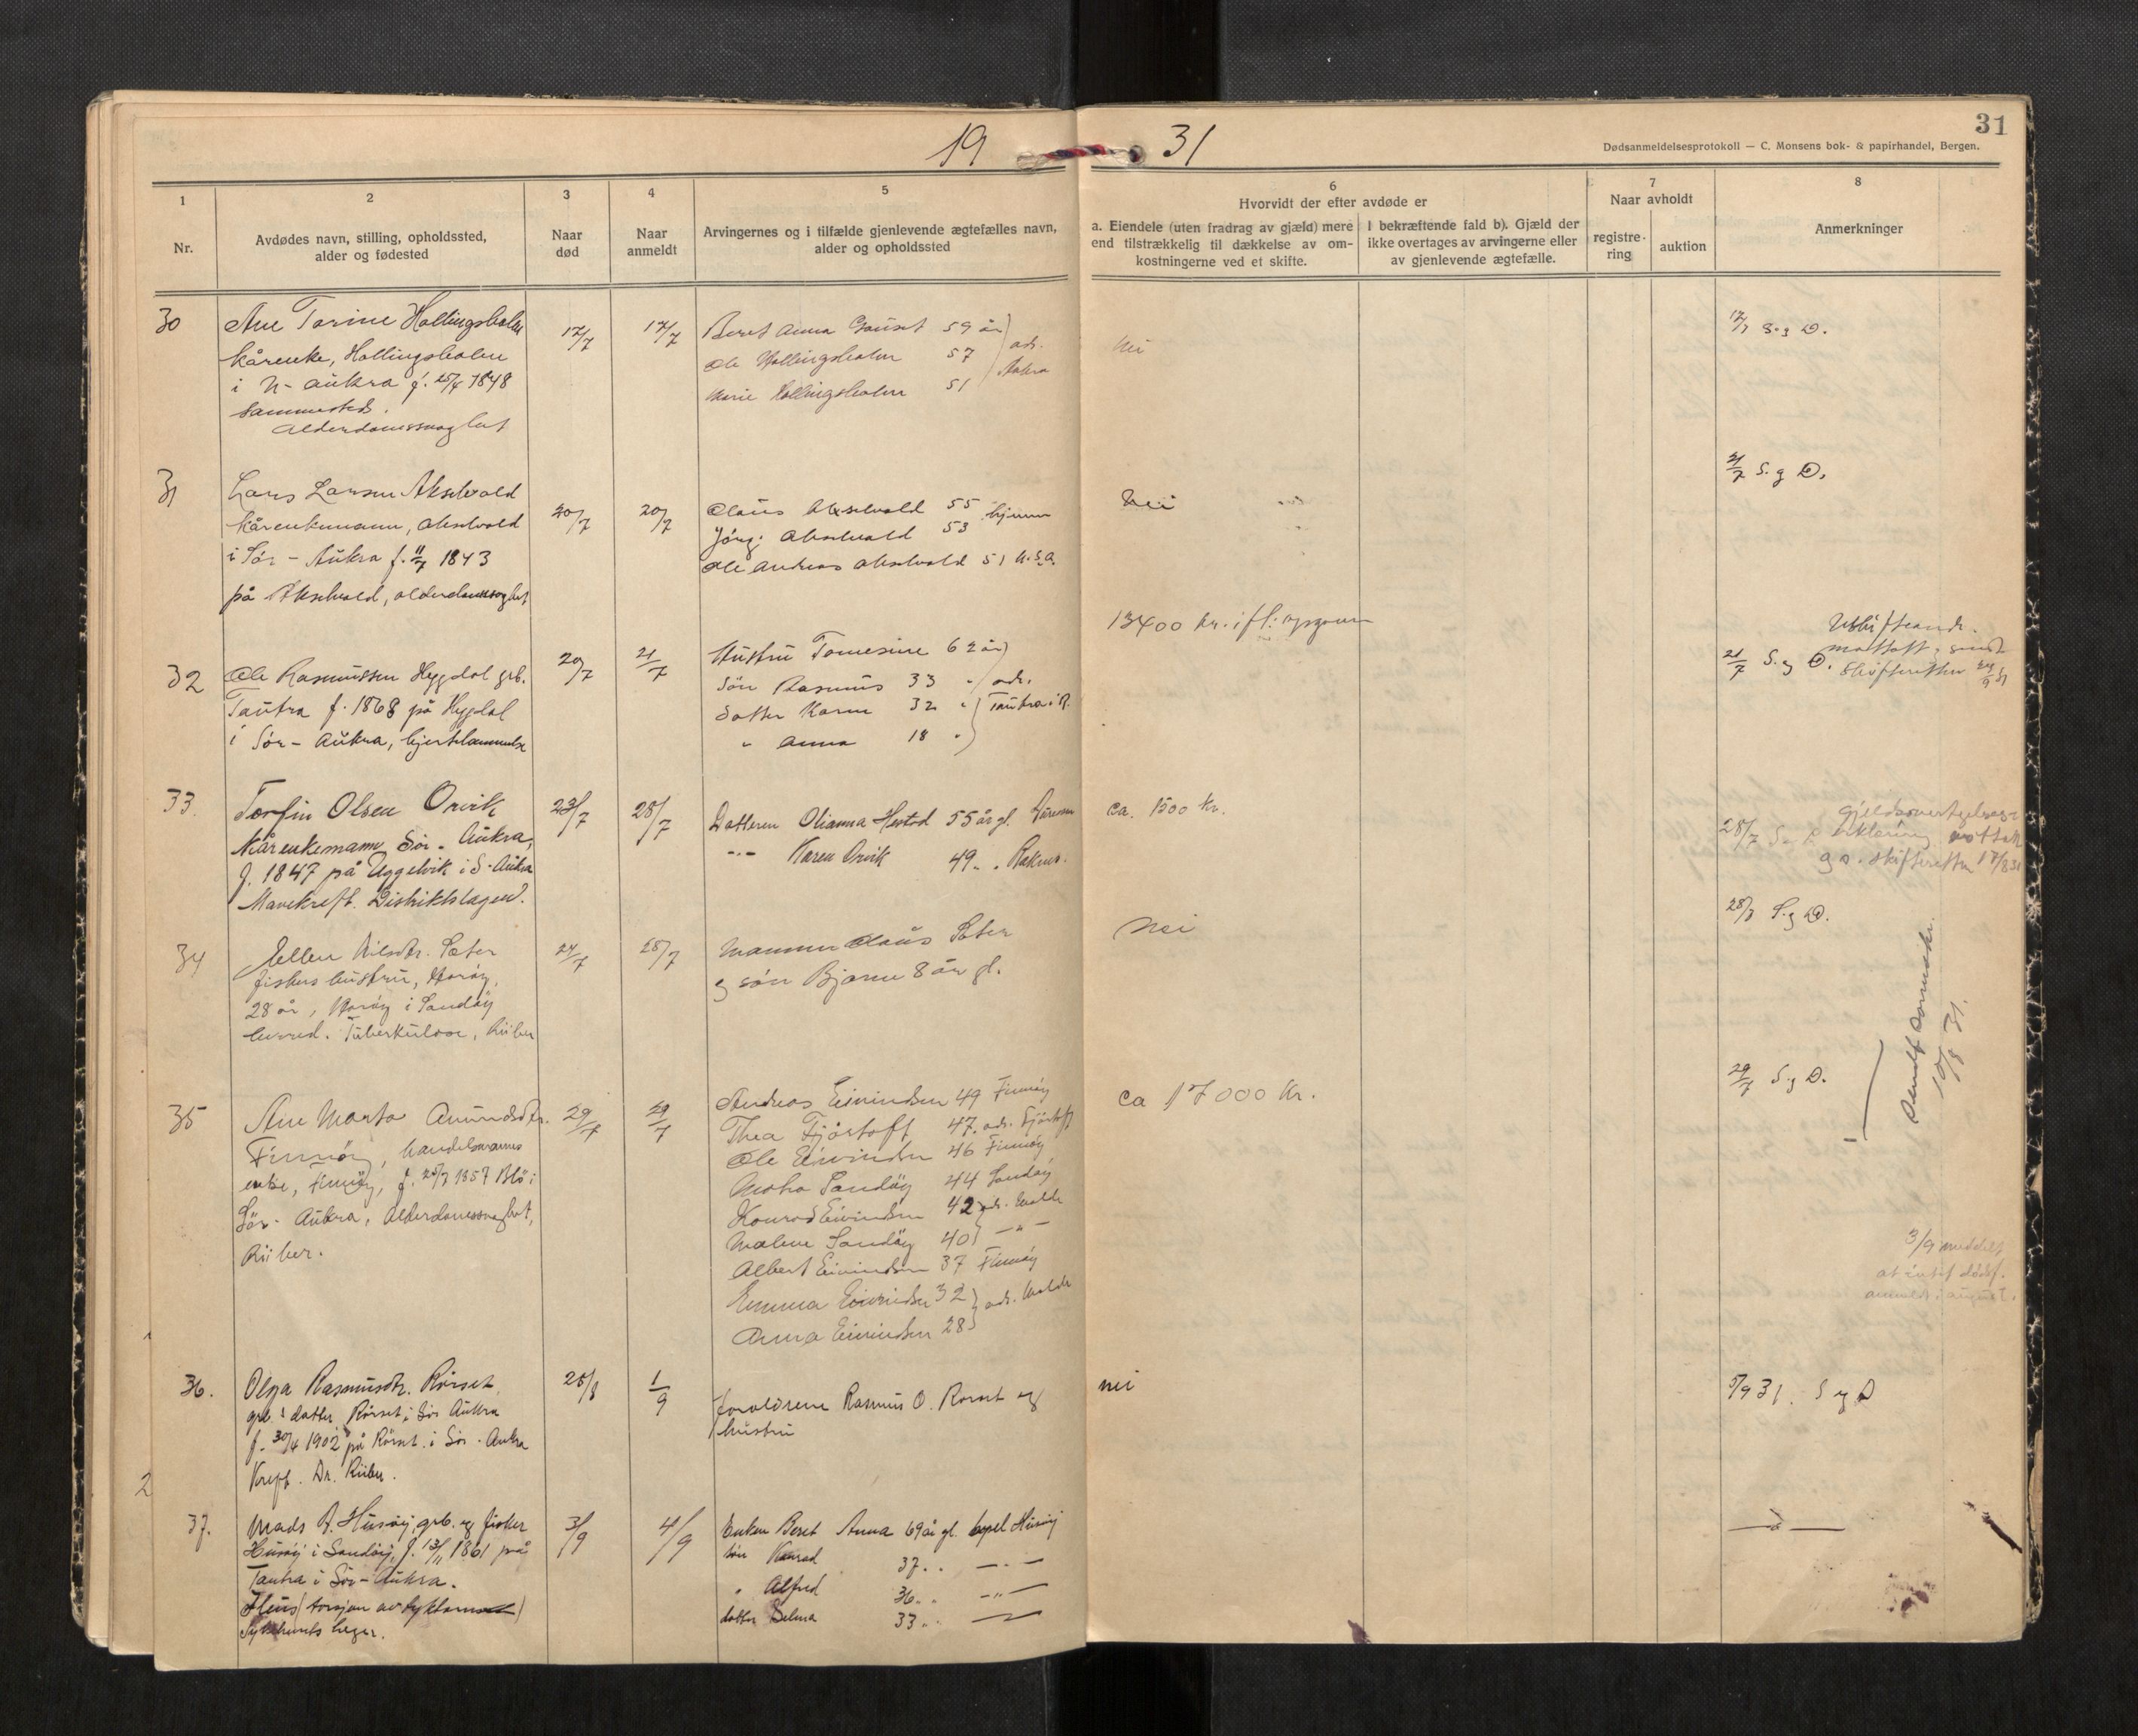 19 31
31
Dødsanmeldelsesprotokoll — C. Monsens bok- & papirhandel, Bergen.
1
Nr.
2
Avdødes navn, stilling, opholdssted,
alder og fødested
3
Naar
død
4
Naar
anmeldt
5
Arvingernes og i tilfælde gjenlevende ægtefælles navn,
alder og opholdssted
6
Hvorvidt der efter avdøde er
a. Eiendele (uten fradrag av gjæld) mere
end tilstrækkelig til dækkelse av om-
kostningerne ved et skifte.
I bekræftende fald b). Gjæld der
ikke overtages av arvingerne eller
av gjenlevende ægtefælle.
7
Naar avholdt
registre-
ring
auktion
8
Anmerkninger
30
Ane Tarine Hollingsholm
kårenke, Hollingsholm
i N-Aukra f. 25/4 1848
sammesteds.
Alderdomssvaghet
17/7
17/7
Beret Anna 59 år
Ole Hollingsholm 57
Marie Hollingsholm 51
adr.
Aukra
Nei
17/7 S. g D.
31
Lars Larsen Akselvold
kårenkemann, Akselvold
i Sör-Aukra f. 11/7 1843
på Akselvold, alderdomssvaghet
20/7
20/7
Olaus Akselvold 55
Jörg. Akselvold 53
hjemme
Ole Andreas Akselvold 51 U.S.A.
Nei
21/7 S. g D.
32
Ole Rasmussen Hygdal grb.
Tautra f. 1868 på Hygdal
i Sör-Aukra, hjertelammelse
20/7
21/7
Hustru Tomesine 62 år
Sön Rasmus 33 "
Datter Karen 32 "
" Anna 18 "
adr.
Tautra i
13400 kr. ifl.
21/7 S. g D.
mottatt, sendt
skifteretten
33.
Torfin Olsen Orvik
Kårenkemann Sör-Aukra,
f. 1847 på Uggelvik i S-Aukra
Mavekreft. Distriktslægen.
23/7
28/7
Datteren Olianna Hestad 55 år gl.
-"- Karen Orvik 49 " "
ca. 1500 kr.
28/7
erklæring mottatt
skifteretten 17/8 31
34
Ellen Nilsdtr. Sæter
fiskers hustru, Harøy,
28 år, Harøy i Sandøy
herred. Tuberkulose, Riiber
24/7
28/7
Mannen Olaus Sæter
og sön Bjarne 8 år gl.
Nei
28/7 S. g D.
35
Ane Marta Amundsdtr.
Finnöy, handelsmanns
enke, Finnöy, f. 25/7 1857 Blö i
Sör-Aukra, Alderdomssvaghet,
Riiber.
29/7
29/7
Andreas Eivindsen 49 Finnöy
Thea Fjörtoft 47 adr. Fjörtoft
Ole Eivindsen 46 Finnöy
Sandöy 44 Sandöy
Konrad Eivindsen 42 adr. Molde
Malene Sandöy 40 -"-
Albert Eivindsen 37 Finnöy
Emma Eivindsen 32
Anna Eivindsen 28
adr. Molde
ca 17000 Kr.
29/7 S. g D.
Sendt
10/8 31.
3/9 meddelt
at intet dödsf.
anmeldt i august.
36.
Olga Rasmusdtr. Rörset,
grb.s datter Rörset i Sör Aukra
f. 30/4 1902 på Rörset i Sör-Aukra
Kreft. Dr. Riiber.
28/8
1/9
foreldrene Rasmus O. Rörset og
hustru
nei
5/9 31. S g D
37.
Mads A. Husöy, grb. og fisker
Husöy i Sandöy, f. 13/11 1861 på
Tautra i Sör-Aukra.
Ileus (torsjon av tyktarm)
Sykehusets læger.
3/9
4/9
Enken Beret Anna 69 år gl. bopel Husöy
sön Konrad 37 " " -"-
" Alfred 36 " " -"-
datter Selma 33 " "